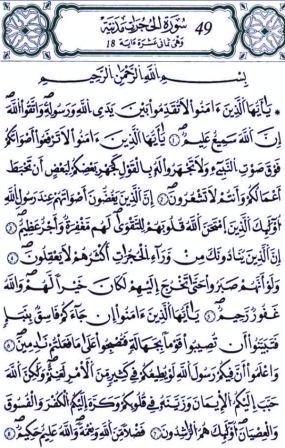 سورة الحجرات مدنية 49
وهي ثماني عشرة ءاية 18
بسم الله الرحمن الرحيم
يأيها الذين ءامنوا لا تقدموا بين يدي الله ورسوله واتقوا الله
إن الله سميع عليم ١ يأيها الذين ءامنوا لا ترفعوا أصواتكم
فوق صوت النبيء ولا تجهروا له بالقول كجهر بعضكم لبعض أن تحبط
أعمالكم وأنتم لا تشعرون ٢ إن الذين يغضون أصواتهم عند رسول الله
أولئك الذين امتحن الله قلوبهم للتقوى لهم مغفرة وأجر عظيم ٣
إن الذين ينادونك من وراء الحجرات أكثرهم لا يعقلون ٤
ولو أنهم صبروا حتى تخرج إليهم لكان خيرا لهم والله
غفور رحيم ٥ يأيها الذين ءامنوا إن جاءكم فاسق بنبإ
فتبينوا أن تصيبوا قوما بجهالة فتصبحوا على ما فعلتم نادمين ٦
واعلموا أن فيكم رسول الله لو يطيعكم في كثير من الأمر لعنتم ولكن الله
حبب إليكم الإيمان وزينه في قلوبكم وكره إليكم الكفر والفسوق
والعصيان أولئك هم الراشدون ٧ فضلا من الله ونعمة والله عليم حكيم ٨